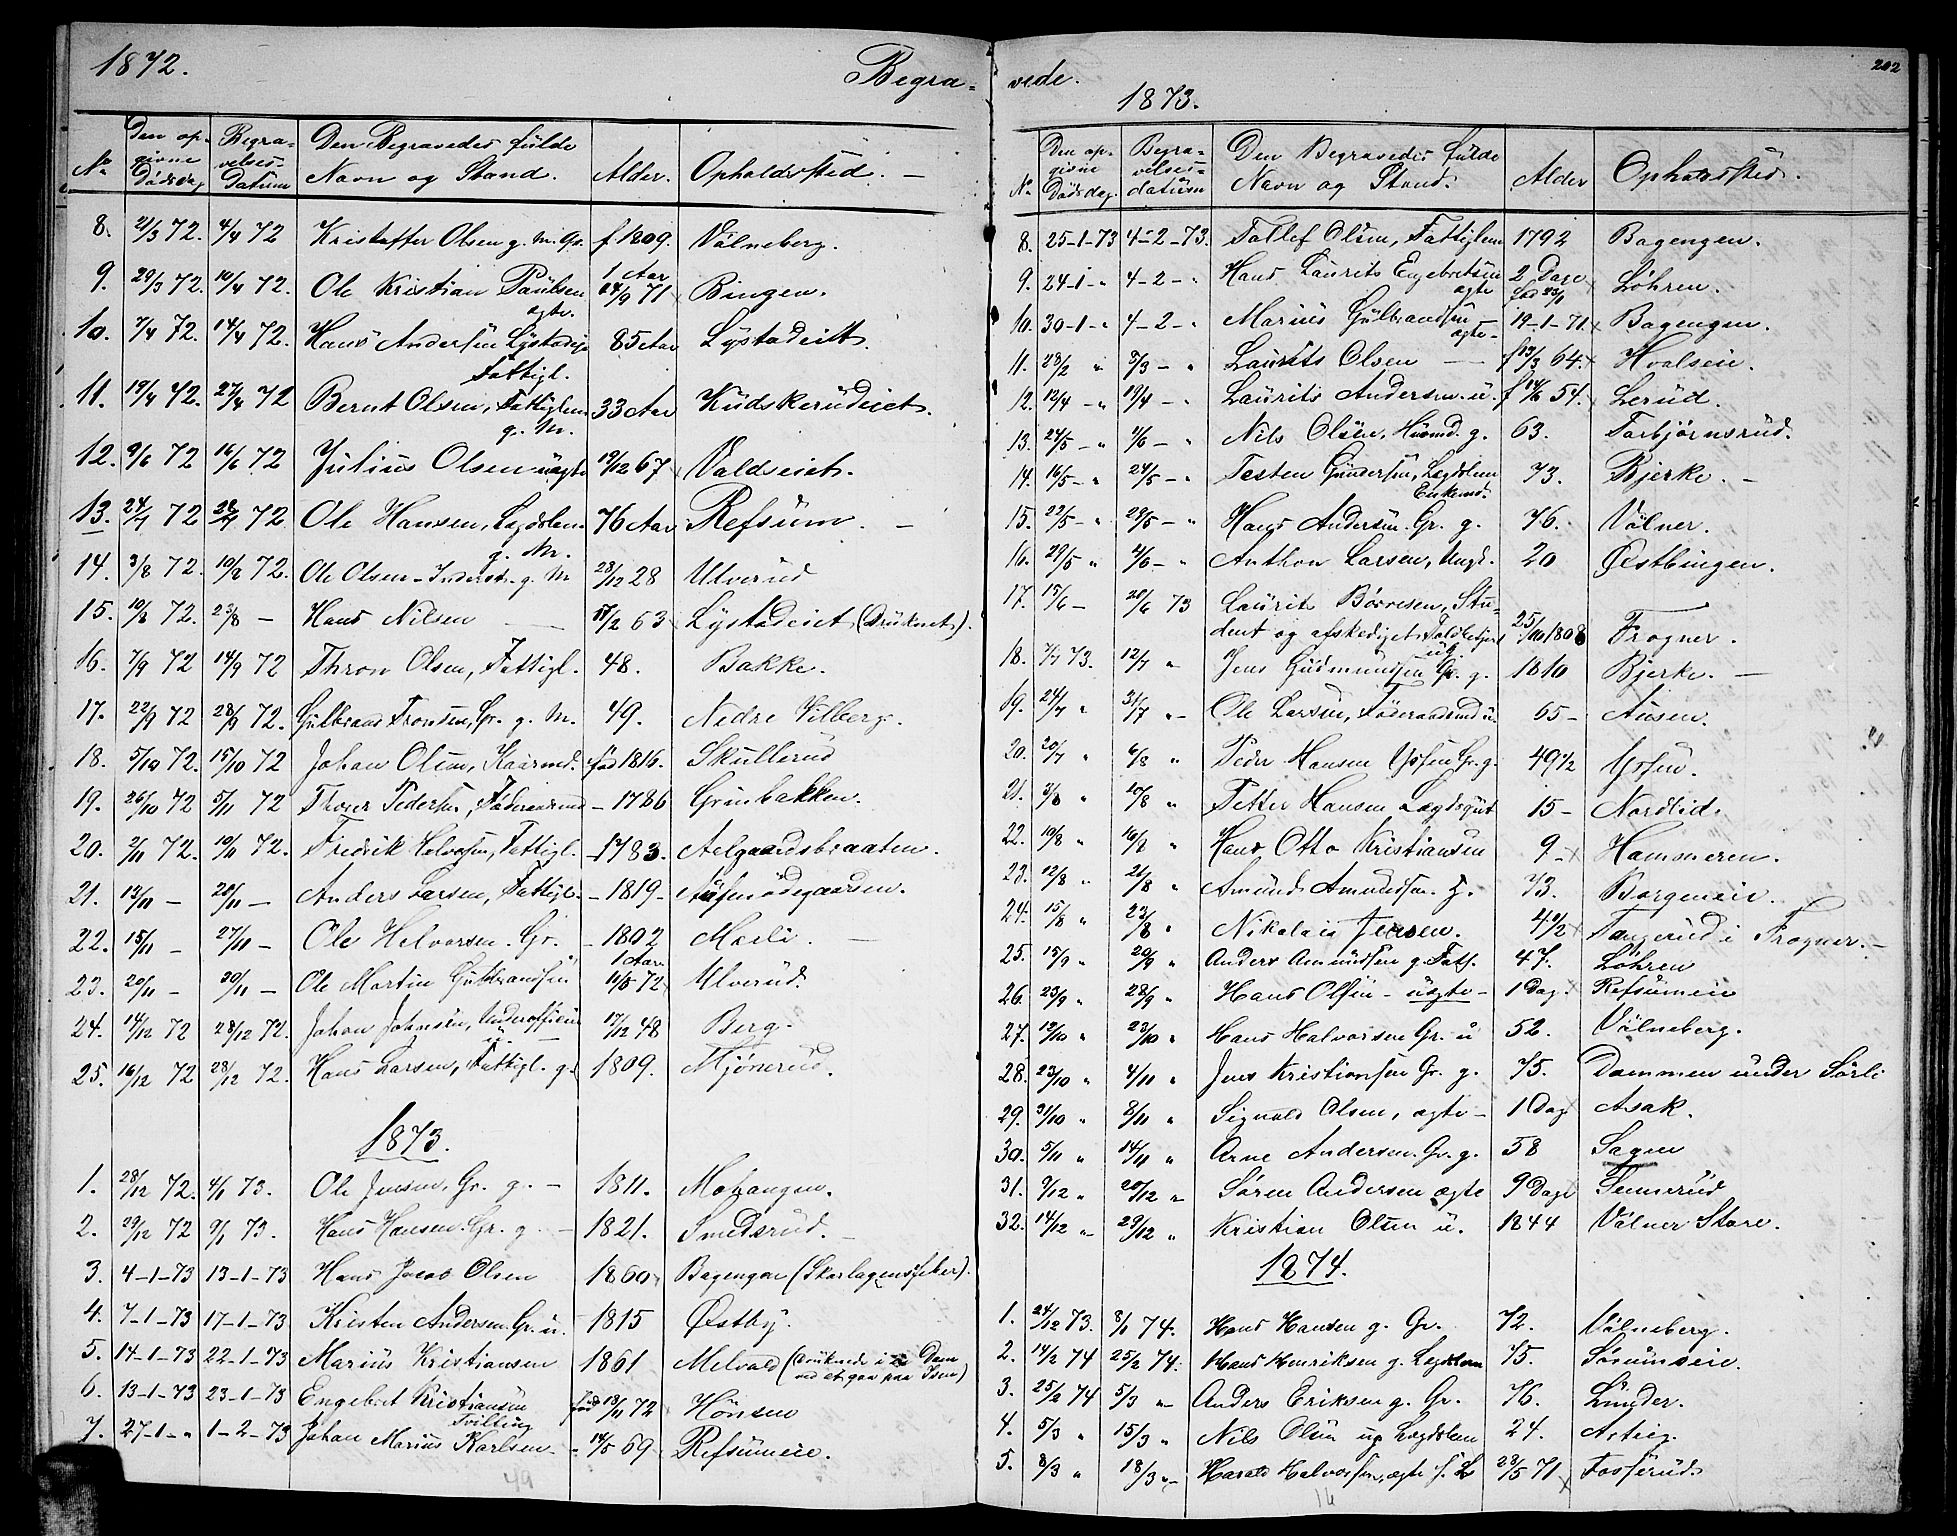 1872.
Begra-
Den op-
givne
Dødsdag
Begra-
velses-
Datum
Den Begravedes fulde
Navn og Stand.
No
Alder.
Opholdssted.
8. 21/3 72. 4/4 72 Kristoffer Olsen g. M. Gr. f 1809. Vålneberg.
9. 29/3 72. 10/4 72. Ole Kristian Paulsen ægte. 1 Aar 71 Bingen.
10. 7/4 72. 14/4 72. Hans Andersen Lystadeje Fattigl. 85 Aar Lystadeiet.
11. 19/4 72. 27/4 72 Bernt Olsen, Fattiglem g. M. 33 Aar Kudskerudeiet.
12. 9/6 72 16/6 72 Julius Olsen uægte 19/12 67 Valdseiet.
13. 24/7 72 72 Ole Hansen, Lægdslem g. M. 76 Aar Refsum. –
14. 3/8 72. 10/8 72. Ole Olsen – Inderst. g. M 28/12 28 Ulverud
15. 10/8 72. 23/8 – Hans Nilsen 63 Lystadeiet (Druknet).
16. 7/9 72 14/9 72 Thron Olsen, Fattigl. 48. Bakke.
17. 22/9 72 28/9 72. Gulbrand Tronsen, Gr. g. M. 49. Nedre Vilberg.
18. 5/10 72. 15/10 72 Johan Olsen, Kaarmd. fød 1816. Skullerud
19. 26/10 72 5/11 72 Thorer Pedersen, Føderaadsmd – 1786 Grinbakken.
20. 2/11 72. 10/11 72. Fredrik Halvorsen, Fattigl. – 1783. Aelgaardsbraaten.
21. 13/11 – 20/11 – Anders Larsen, Fattigl. – 1819 –
22. 15/11 – 27/11 – Ole Halvorsen. Gr. – 1802 Mæli. –
23. 20/11 – 30/11 – Ole Martin Gulbrandsen 1 Aar 72 Ulverud.
24. 14/12 72 28/12 72. Johan Johnsen, Underofficier u. 17/12 48 Berg.
25. 16/12 72 28/12 72. Hans Larsen, Fattigl. g. 1809. Mjønerud.
1873.
1. 28/12 72. 4/1 73. Ole Jensen, Gr. g. – 1811. Mohaugen.
2. 29/12 72 9/1 73. Hans Hansen. Gr. g. – 1821. Smedsrud.
3. 4-1-73 13-1-73 Hans Jacob Olsen 1860 Bagengen (Skarlagensfeber).
4. 7-1-73 17-1-73 Kristen Andersen. Gr. u. 1815 Østby.
5. 14-1-73 22-1-73 Marius Kristiansen 1861 Melvold (Druknede i en Dam ved at gaa paa Isen)
6. 13-1-73 23-1-73 Engebret Kristiansen Tvilling fød 13/11 72 Hønsen
7. 27-1-" 1-2-73 Johan Marius Karlsen 14/5 69 Refsumeie.
49
vede.
1873.
202
No
Den op-
givne
Dødsdag
Begra-
velses-
datum
Den Begravedes fulde
Navn og Stand.
Alder
Opholdssted.
8. 25-1-73 4-2-73. Tollef Olsen, Fattiglem 1792 Bagengen.
9. 24-1-" 4-2-" Hans Laurits Engebretsen ægte 2 Dage fød 23/1 Løhren.
10. 30-1-" 4-2-" Marius Gulbrandsen ægte – 19-1-71 Bagengen.
11. 23/2 " 3/3 – " Laurits Olsen – f 13/3 64. Hvalseie.
12. 12/4 – " 19/4 – " Laurits Andersen u. f 54. Lerud.
13. 24/5 – " 4/6 – " Nils Olsen, Husmd. g. 63. Torbjørnsrud.
14. 16/5 – " 24/5 – " Testen Gundersen, Lægdslem Enkemd. 73. Bjerke. –
15. 22/5 – " 29/5 – " Hans Andersen. Gr. g. 76. Vålner.
16. 29/5 " 4/6 – " Anthon Larsen, Ungk. 20 Østbingen.
17. 15/6 – 20/6 73 Laurits Børresen, Stu-
dent og afskediget Toldbetjent ug. 1808 Frogner.
18. 7/7 73. 12/7 " Jens Gudmundsen Gr. g. 1810 Bjerke. –
19. 24/7 " 31/7 " Ole Larsen, Føderaadsmd u. 65 – Ausen.
20. 20/7 " 6/8 " Peder Hansen Ussen Gr. g. 49 1/2 Ussen.
21. 3/8 " 10/8 " Petter Hansen Lægdsgut 15 – Nordlid.
22. 10/8 " 16/8 " Hans Otto Kristiansen 9 – Hammeren.
23. 12/8 " 21/8 " Amund Amundsen. g. 73. Borgeneie.
24. 15/8 " 23/8 " Nikolai Jensen. 4 1/2 Tangerud i Frogner. –
25. 15/9 " 20/9 " Anders Amundsen g. Fatt. 47. Løhren
26. 23/9 " 28/9 " Hans Olsen – uægte – 1 Dag Refsumeie
27. 12/10 " 23/10 " Hans Halvorsen Gr. u 52. Vålneberg.
28. 23/10 " 4/11 " Jens Kristiansen Gr. g. 75. Dammen under Sørli
29. 31/10 " 8/11 " Sigvald Olsen, ægte – 1 Dag Asak.
30. 5/11 " 14/11 " Arne Andersen. Gr. g. 58 Sagen
31. 9/12 " 20/12 " Søren Andersen ægte 9 Dage Sennerud
32. 14/12 " 29/12 " Kristian Olsen u. 1844 Vålner Store.
1874.
1. 24/12 73. 8/1 74. Hans Hansen g. Gr. 72. Vålneberg.
2. 14/2 74 25/2 74. Hans Henriksen g. Lægdslem 75. Sørumseie.
3. 25/2 74 5/3 " Anders Eriksen g. Gr. 76. Lunder.
4. 5/3 " 15/3 " Nils Olsen ug Lægdslem 24. Asteig.
5. 8/3 " 18/3 " Harald Halvorsen, ægte f. L 28/5 71 Fosserud.
16